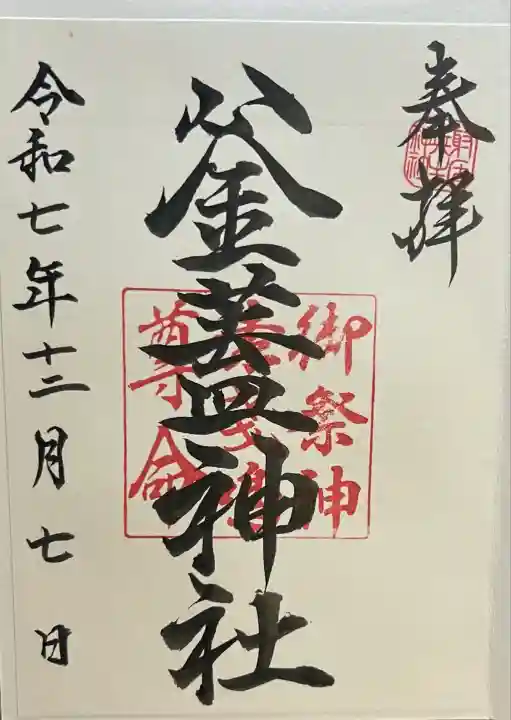 奉拝
釜蓋神社
御祭神
尊命
令和七年十二月七日